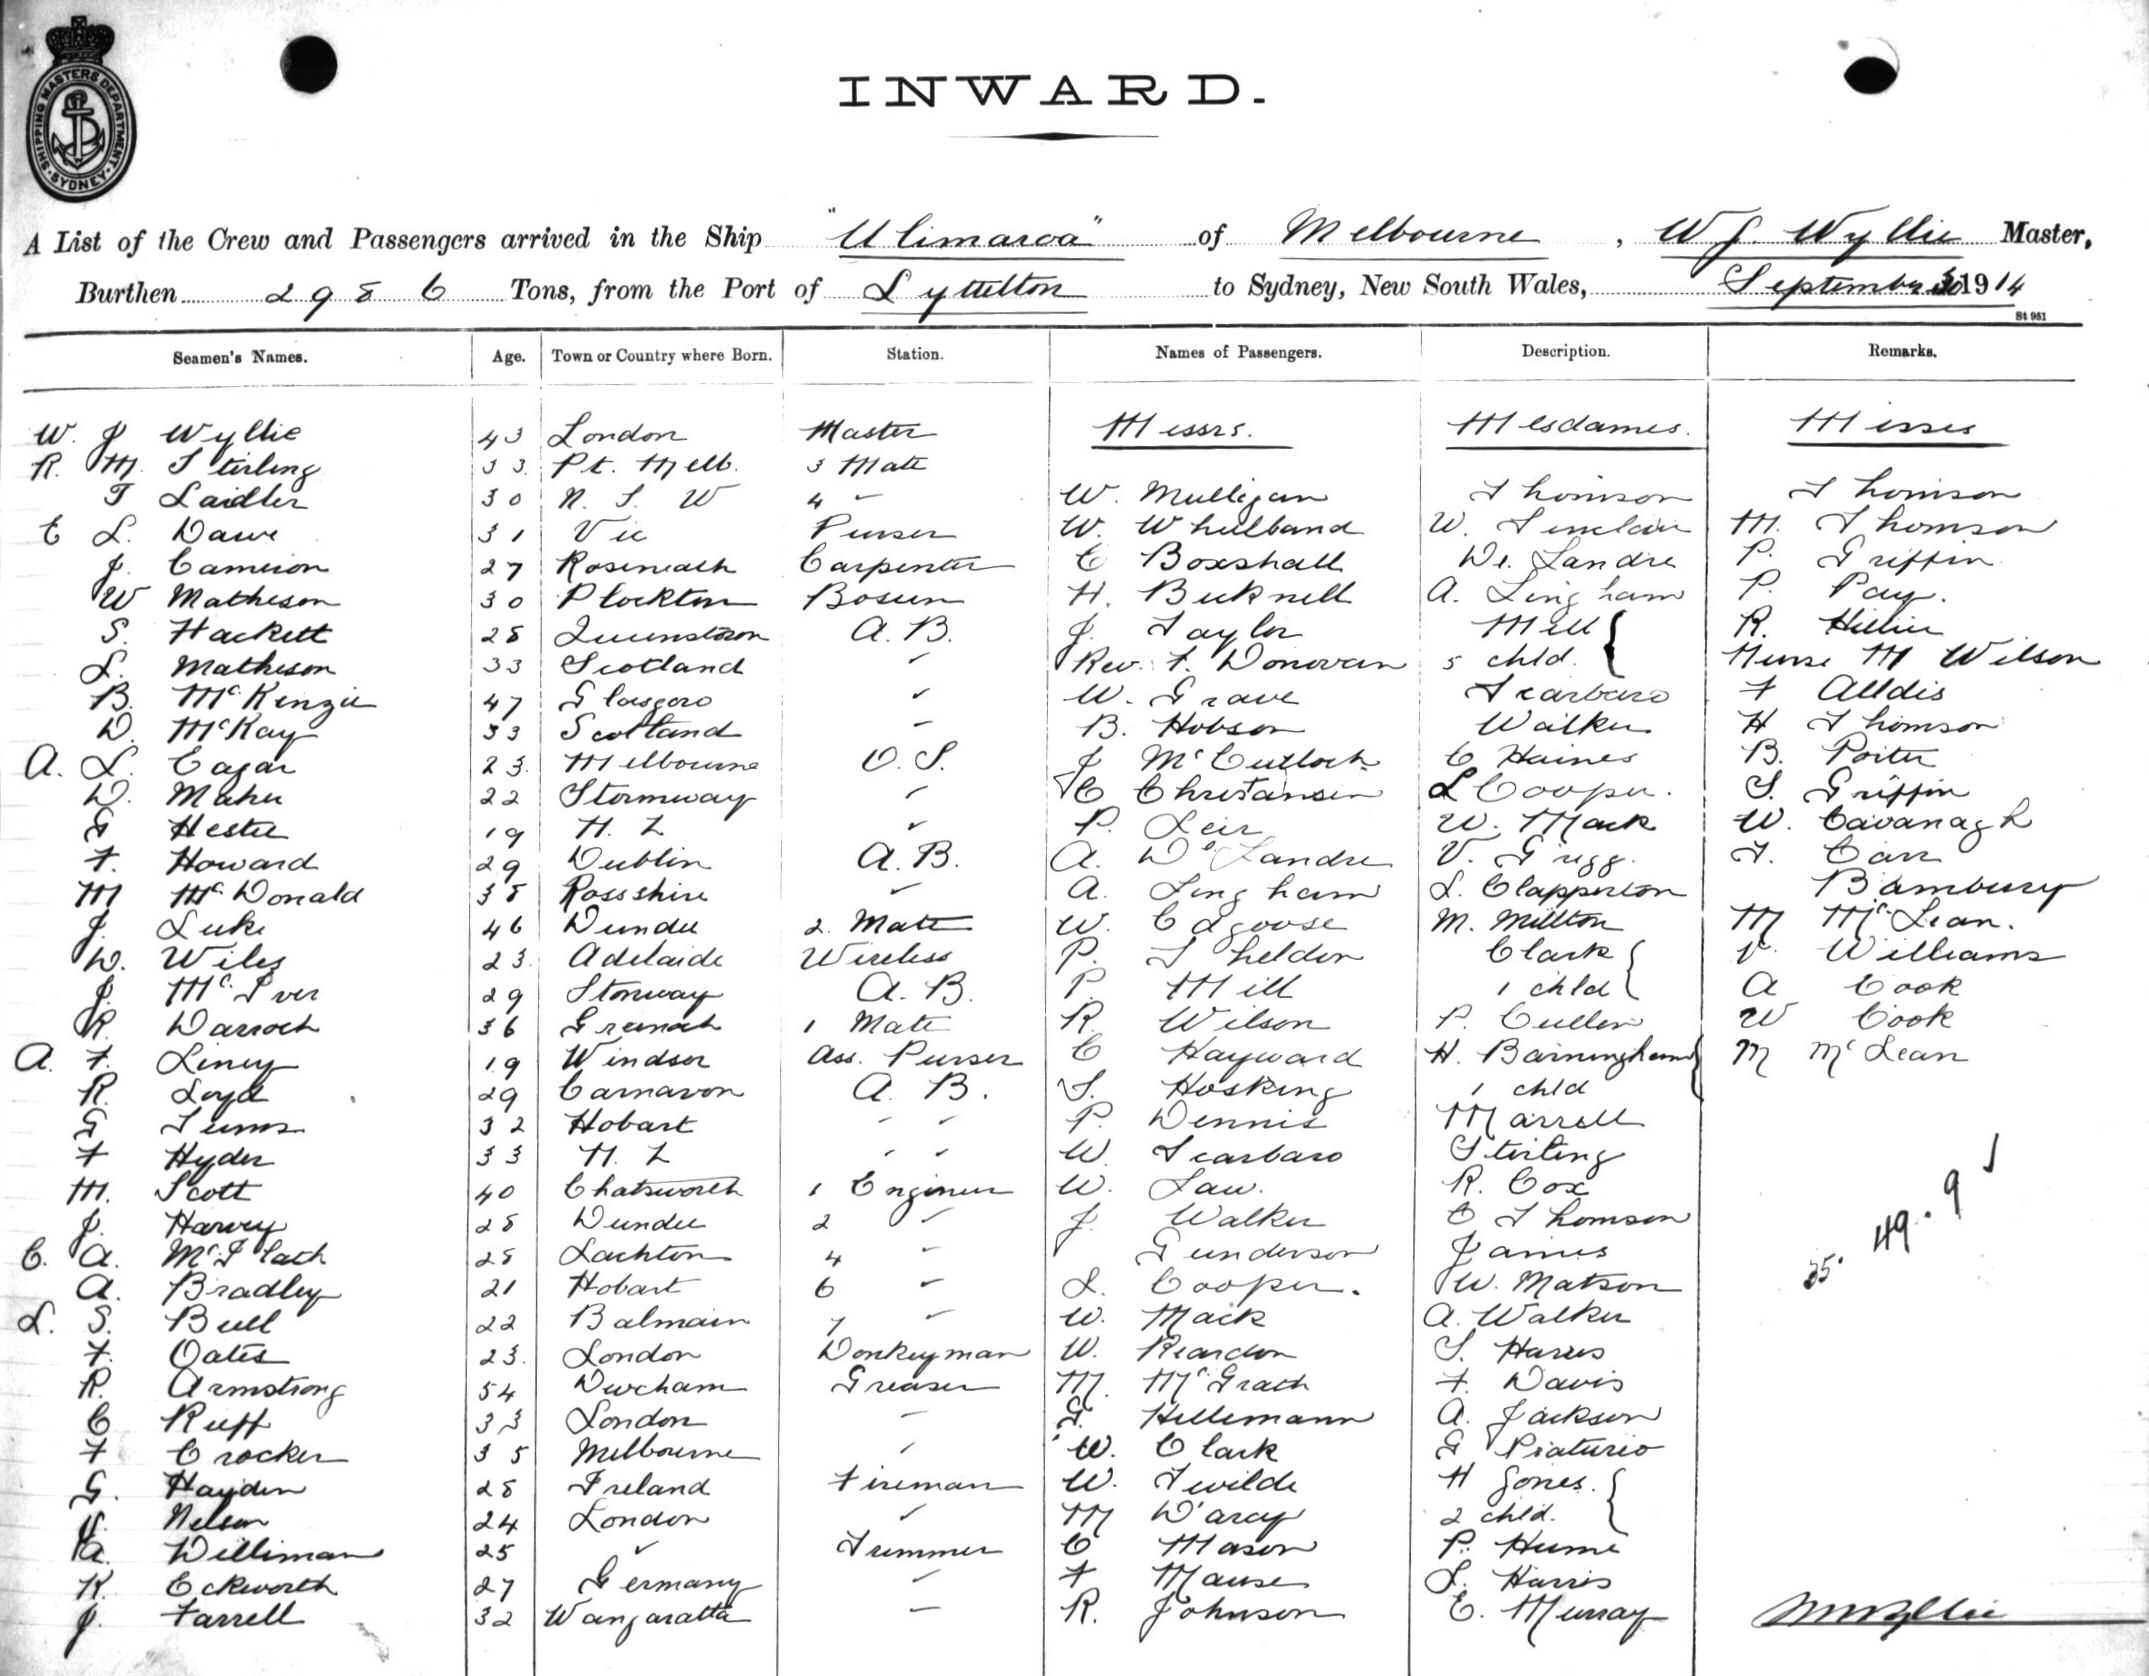 SHIPPING MASTERS DEPARTMENT. SYDNEY
INWARD.
A List of the Crew and Passengers arrived in the Ship "Ulimaroa" of Melbourne, W J. Wyllie Master,
Burthen 2986 Tons, from the Port of Lyttelton to Sydney, New South Wales, September 1914
St 951
Seamen's Names. Age. Town or Country where Born. Station. Names of Passengers. Description. Remarks.
W. J Wyllie 43 London Master Messrs. Mesdames. Misses
R. M. Stirling 33 Pt. Melb. 3 Mate
T Laidler 30 N. S. W 4 " W. Mulligan Thomson Thomson
E L. Dawe 31 Vic Purser W. Whulband W. Sinclair M. Thomson
J. Cameron 27 Roseneath Carpenter C Boxshall De. Landre P. Griffin
W Matheson 30 Plockton Bosun H. Bucknell A. Lingham P. Pay.
S. Hackett 28 Queenstown A. B. J. Taylor Mill R. Hillier
L. Matheson 33 Scotland " Rev. F. Donovan 5 chld. Nurse M Wilson
B. McKenzie 47 Glasgow " W. Grave Scarbaro F Alldis
D. McKay 33 Scotland " B. Hobson Walker H Thomson
A. L. Eagar 23. Melbourne O. S. J McCutloch C Haines B. Porter
D. Maher 22 Stornway " C Christansen L Cooper. S. Griffin
G Hester 19 N. Z " P. Leir W. Mack W. Cavanagh
F. Howard 29 Dublin A. B. A. De Landre V. Grigg. T. Carr
M McDonald 38 Rossshire " A. Lingham L. Clapperton Bambury
J. Luke 46 Dundee 2. Mate W. Edgoose M. Millton M McLean.
D. Wiles 23. Adelaide Wireless P. Sheldon Clark V. Williams
J. McIver 29 Stonway A. B. P. Mill 1 chld A Cook
R. Darroch 36 Greenock 1 Mate R. Wilson P. Cullen W Cook
A. F. Liney 19 Windsor Ass. Purser C Hayward H. Barningham M McLean
R. Loyd 29 Carnavon A. B. S. Hosking 1 chld
G Tums 32 Hobart " " P. Dennis Marrell
F Hyder 33 N. Z " " W. Scarbaro Stirling
M. Scott 40 Chatsworth 1 Engineer W. Law. R. Cox
J. Harvey 28 Dundee 2 " J. Walker C Thomson
C. A. McIlath 28 Lachton 4 " Gunderson James
A. Bradley 21 Hobart 6 " L. Cooper. W. Matson
L. S. Bull 22 Balmain 7 " W. Mack A. Walker
F. Oates 23. London Donkeyman W. Reardon S. Harris
R. Armstrong 54 Durham Greaser M. McGrath F. Davis
C Ruff 33 London " G. Hillemann A. Jackson
F Crocker 35 Melbourne " W. Clark G Piaturio
G. Hayden 28 Ireland Fireman W. Twilde H Jones.
Nelson 24 London " M D'arcy 2 chld.
A. Williman 25 " Trimmer C Mason P. Hume
K. Eckworth 27 Germany " F Mause L. Harris
J. Farrell 32 Wangaratta " R. Johnson E. Murray
35. 49. 9